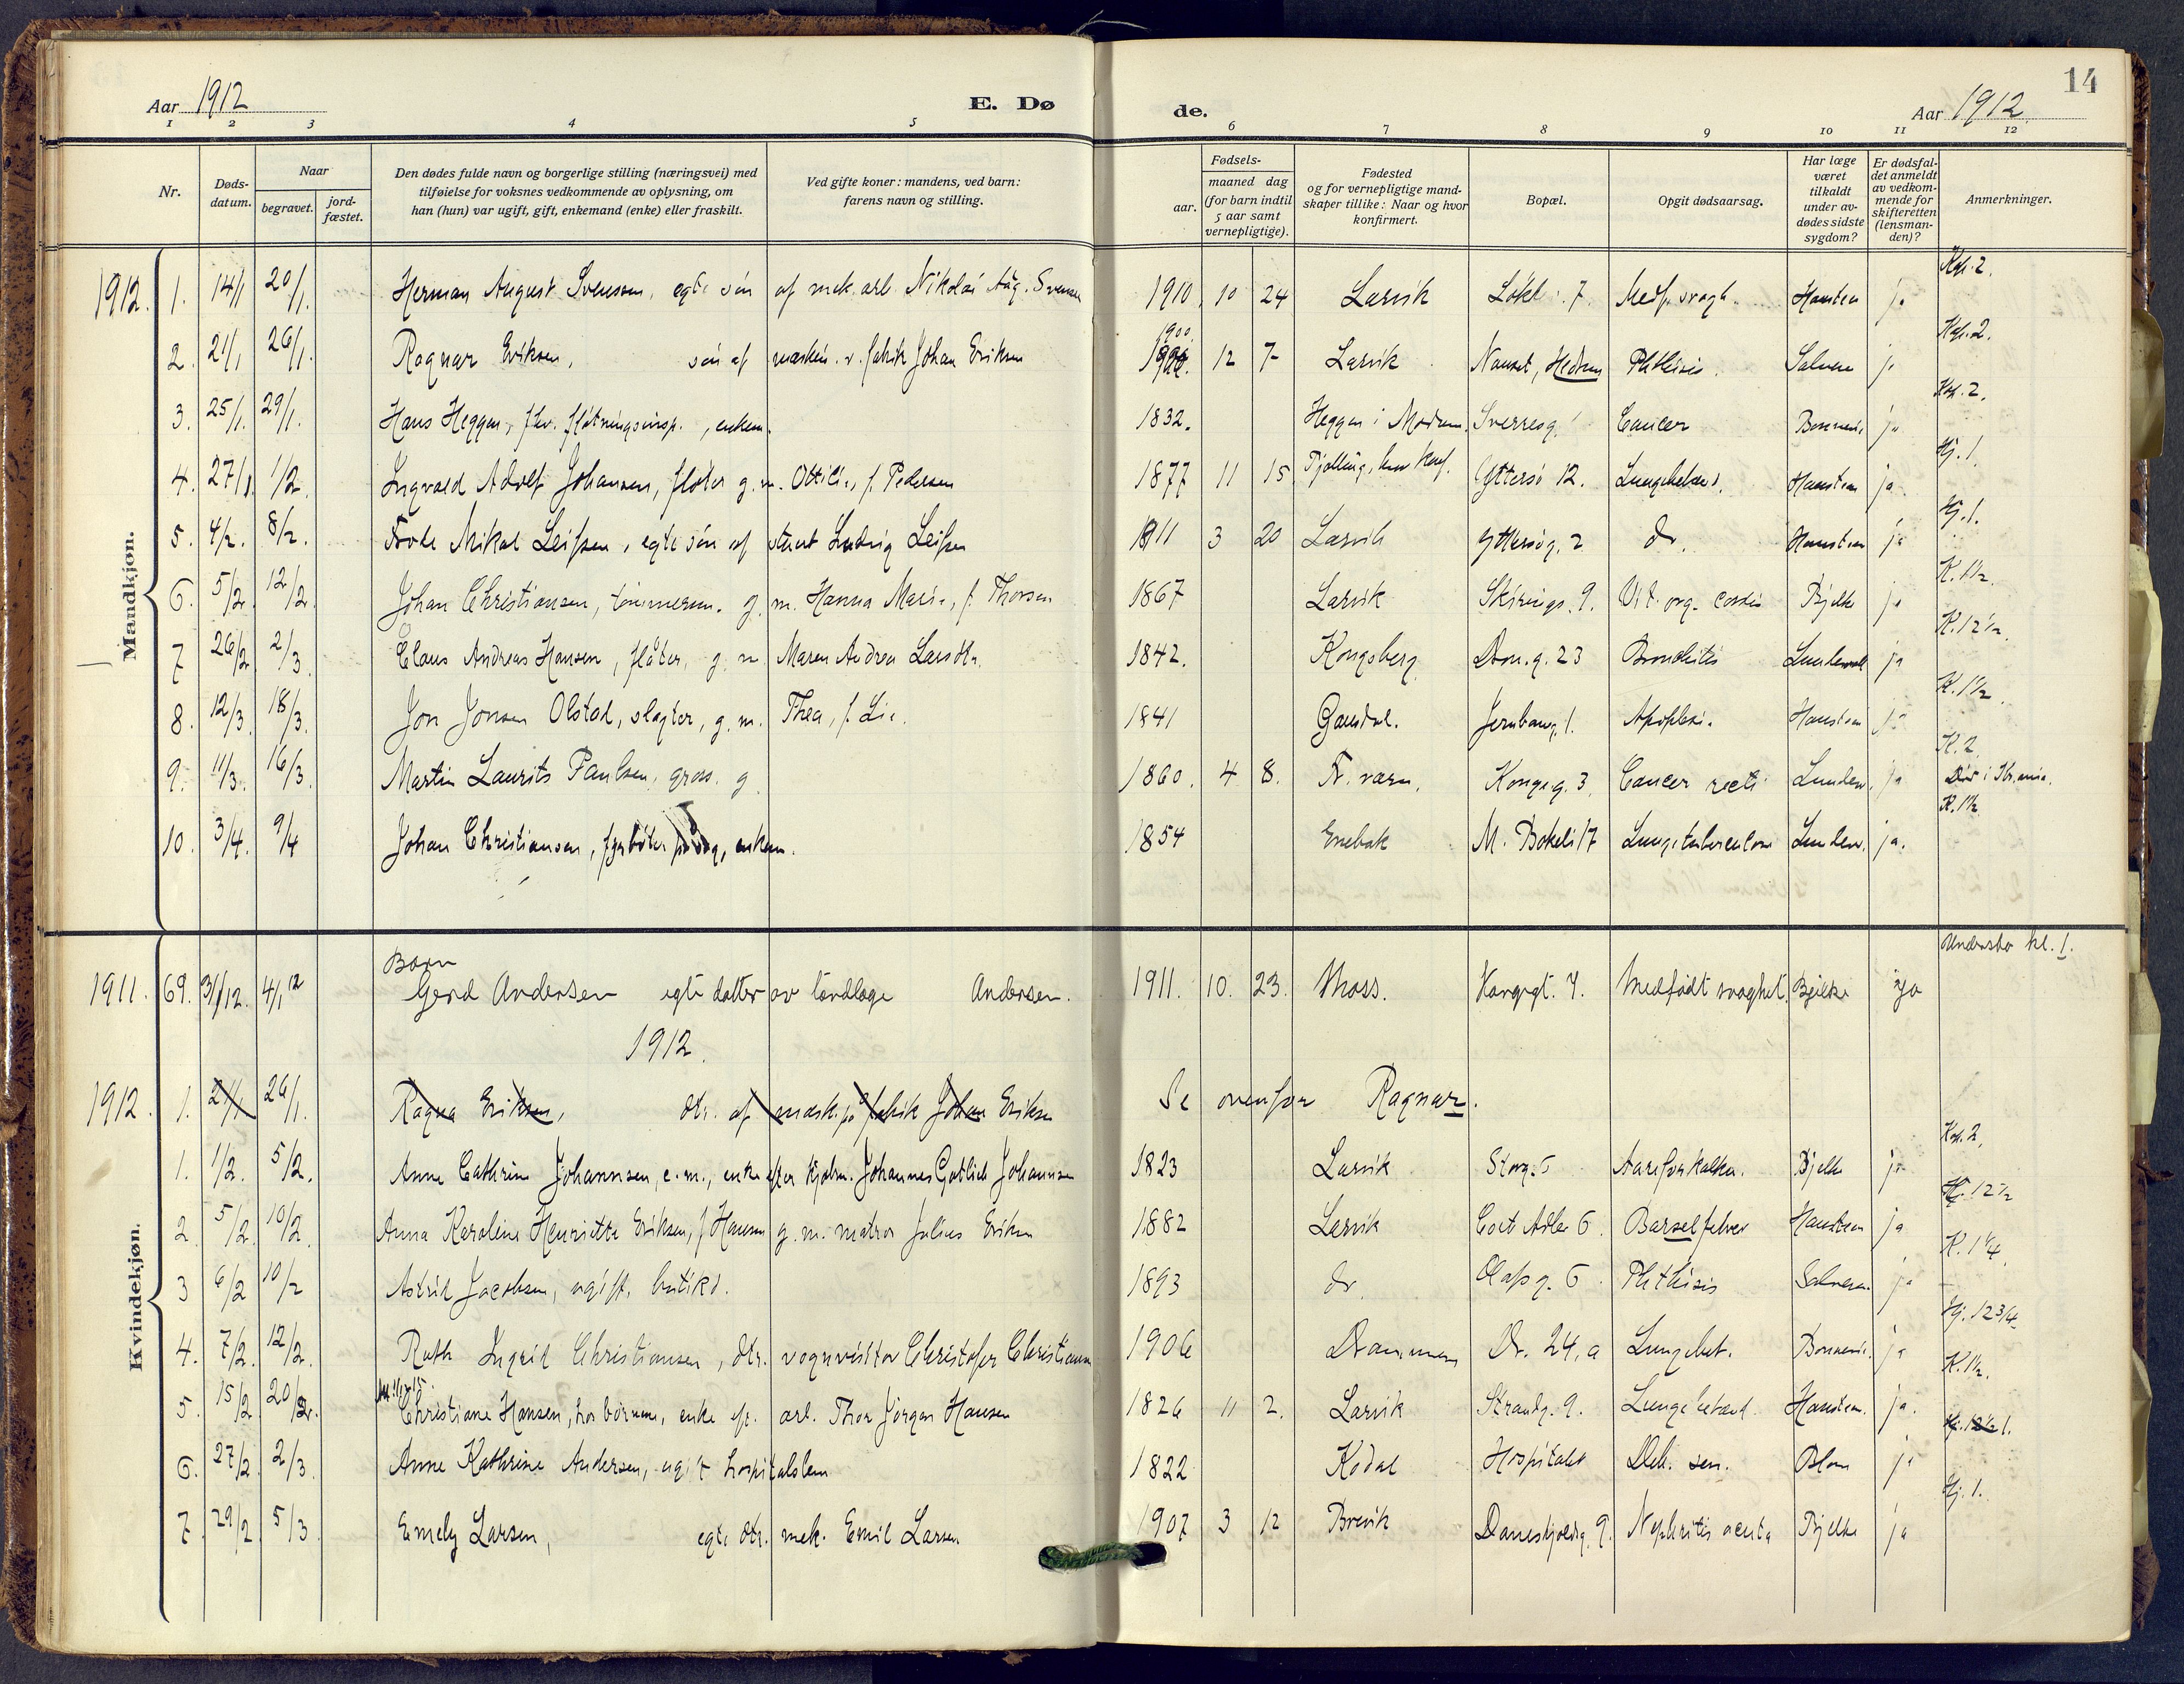 14
Aar 1912 E. Dø de. Aar 1912
1 2 3 4 5 6 7 8 9 10 11 12
Nr.
Døds-datum.
Naar
begravet.
jord-fæstet.
Den dødes fulde navn og borgerlige stilling (næringsvei) med
tilføielse for voksnes vedkommende av oplysning, om
han (hun) var ugift, gift, enkemand (enke) eller fraskilt.
Ved gifte koner: mandens, ved barn:
farens navn og stilling.
Fødsels-
aar.
maaned dag
(for barn indtil
5 aar samt
vernepligtige).
Fødested
og for vernepligtige mand-
skaper tillike: Naar og hvor
konfirmert.
Bopæl.
Opgit dødsaarsag.
Har læge
været
tilkaldt
under av-
dødes sidste
sygdom?
Er dødsfal-
det anmeldt
av vedkom-
mende for
skifteretten
(lensman-
den)?
Anmerkninger.
Mandkjøn.
1912. 1. 14/1 20/1. Herman August Svensen, egte søn af mek. arb. Nikolai Aug. Svensen 1910 10 24 Larvik 7. Medf. svagh. Hansteen ja Kap. 2.
2. 21/1 26/1. Ragnar Eriksen, søn af maskin. v. fabrik Johan Eriksen 1900. 12 7 Larvik Nanset, Hedrum Phthisis. Salvesen ja Kap. 2.
3. 25/1. 29/1. Hans Heggen, fhv. fløtningsinsp., enkem. 1832. Heggen i Modum. Sverresg. Cancer ja Kap. 2.
4. 27/1. 1/2. Ingvald Adolf Johansen, fløter g. m. Ottilie, f. Pedersen 1877 11 15 Tjølling, Yttersø 12. Lungebetænd. Hansteen ja Kj. 1.
5. 4/2. 8/2. Frode Mikal Leifsen, egte søn af Ludvig Leifsen 1911 3 20 Larvik Yttersøg. 2 do. Hansteen ja Kj. 1.
6. 5/2. 12/2. Johan Christiansen, tømmerm. g. m. Hanna Marie, f. Thorsen 1867 Larvik Skirings. 9. Vit. org. cordis Bjelke ja K. 1½.
7 26/2 2/3. Claus Andreas Hansen, fløter, g. m. Maren Andrea Larsdtr. 1842. Kongsberg Dron. g. 23 Bronchitis ja K. 12½.
8. 12/3. 18/3. Jon Jonsen Olstad, slagter, g. m. Thea, f. Lie. 1841 Gausdal. Jernbaneg. 1. Apoplexi. Hansteen ja K. 1½.
9. 11/3. 16/3. Martin Laurits Paulsen, gros. g. 1860. 4 8. Fr. værn. Kongeg. 3. Cancer recti Lundew. ja K. 2. Død i Kr.ania.
10. 3/4. 9/4 Johan Christiansen, fyrbøter enkem. 1854 Enebak M. Bøkeli 17 Lungetuberculose Lundew. ja. K. 1½
Kvindekjøn.
1911. 69. 31/12. 4/1 12 Barn Gerd Andersen egte datter av tandlæge Andersen. 1911. 10. 23. Moss. Kongegt. 7. Medfødt svaghet. Bjelke ja kl. 1.
1912.
1912. 1. 21/1 26/1. Ragna Eriksen, dtr. af mask. på fabrik Johan Eriksen Se ovenfor Ragnar.
1. 1/2. 5/2. Anne Cathrine Johannsen, e. m., enke efter Kjøbm. Johannes Gotlieb Johannsen 1823 Larvik Storg. 6 Aareforkalkn. Bjelke ja Kap. 2.
2. 5/2. 10/2. Anna Karoline Henriette Eriksen, f. Hansen g. m. matros Julius Eriksen 1882 Larvik Cort Adler 6. Barselfeber Hansteen ja K. 12½
3 6/2 10/2 Astrid Jacobsen, ugift, butikd. 1893 do. Olafsg. 6. Phthisis Salvesen ja K. 1¼.
4. 7/2. 12/2. Ruth Ingrid Christiansen, dtr. vognvisitør Christofer Christiansen 1906 Drammen Dr. 24, a Lungebet. ja Kj. 12¾
5. 15/2 20/2. Christiane Hansen, hos børnene, enke ef. arb. Thor Jørgen Hansen 1826 11 2. Larvik Strandg. 9. Lungebetænd. Hansteen. ja. K. 1½.
6. 27/2. 2/3. Anne Kathrine Andersen, ugift hospitalslem 1822 Kodal Hospitalet Deb. sen. Blom ja 1.
7. 29/2. 5/3. Emely Larsen, egte dtr. mek. Emil Larsen 1907 3 12 Brevik Daneskjoldsg. 9. Nephritis acuta Bjelke ja Kj. 1.